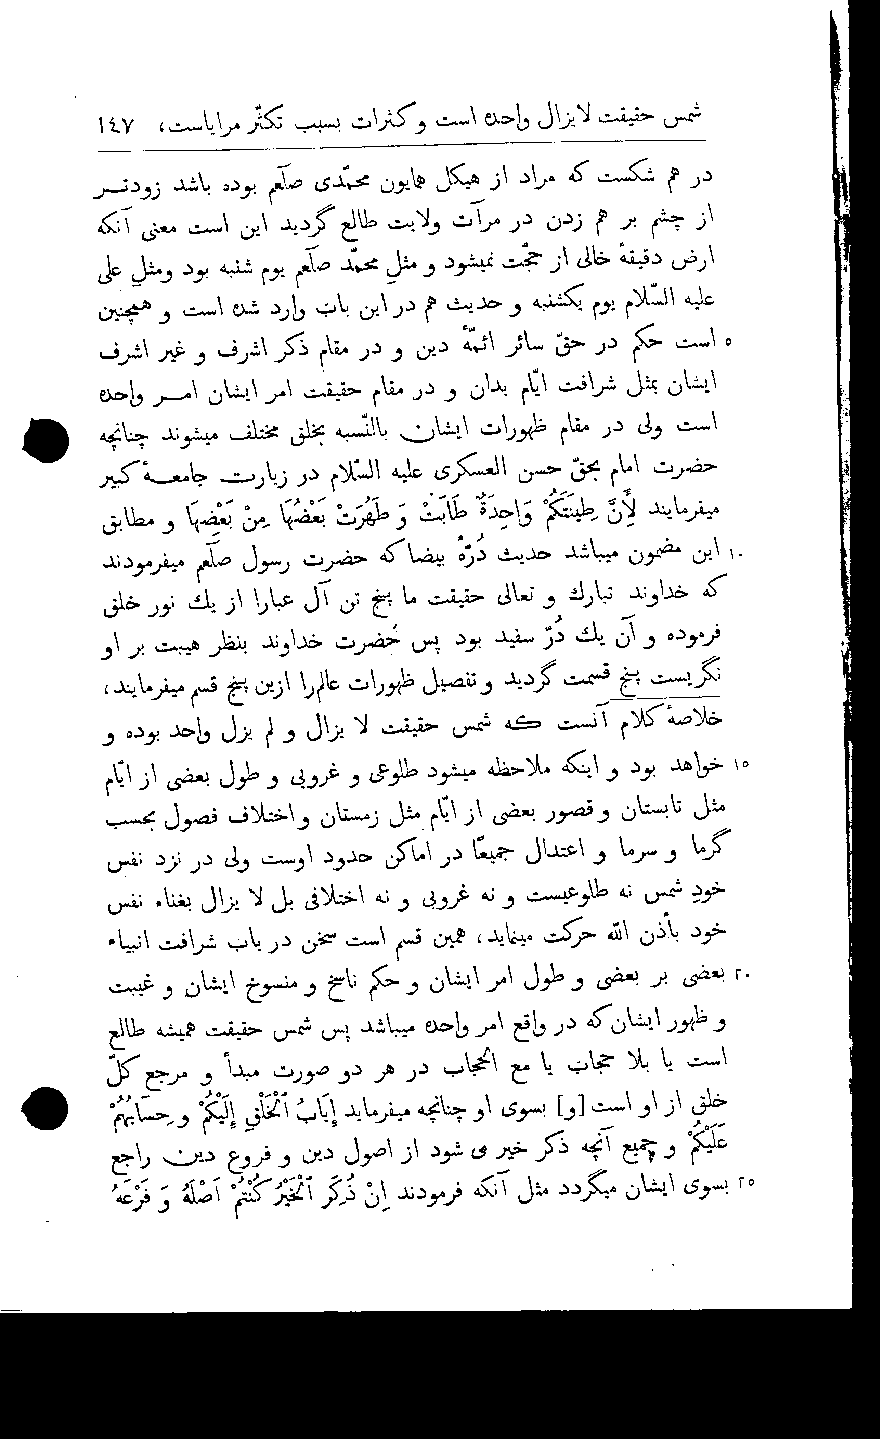 شمس حقیقت لایزال واحده است و کثرات بسبب تکثّر مرایاست، ١٤٧
در هم شکست که مراد از هیکل همایون محمّدی صلّعم بوده باشد زودتر
از چشم بر هم زدن در مرآت ولایت طالع گردید این است معنی آنکه
ارض دقیقهٔ خالی از حجّت نمیشود و مثل محمّد صلّعم یوم شنبه بود ومثل علی
علیه السّلام یوم یکشنبه و حدیث هم در این باب وارد شده است و همچنین
٥ است حکم در حقّ سائر ائمّهٔ دین و در مقام ذکر اشرف و غیر اشرف
ایشان بمثل شرافت ایّام بدان و در مقام حقیقت امر ایشان امر واحده
است ولی در مقام ظهورات ایشان بالنّسبه بخلق مختلف میشوند چنانچه
حضرت امام بحقّ حسن العسکری علیه السّلام در زیارت جامعهٔ کبیر
میفرمایند لِأَنَّ طِینَتَکُمْ وَاحِدَةٌ طَابَتْ وَ طَهُرَتْ بَعْضُهَا مِنْ بَعْضِهَا و مطابق
١٠ این مضمون میباشد حدیث دُرّهٔ بیضا که حضرت رسول صلّعم میفرمودند
که خداوند تبارك و تعالی حقیقت ما پنج تن آل عبارا از یك نور خلق
فرموده و آن یك دُرّ سفید بود پس حضرت خداوند بنظر هیبت بر او
نگریست پنج قسمت گردید و تفصیل ظهورات عالمرا ازین پنج قسم میفرمایند،
خلاصهٔ کلام آنست که شمس حقیقت لا یزال و لم یزل واحد بوده و
١٥ خواهد بود و اینکه ملاحظه میشود طلوعی و غروبی و طول بعضی از ایّام
مثل تابستان و قصور بعضی از ایّام مثل زمستان و اختلاف فصول بحسب
گرما و سرما و اعتدال جمیعًا در اماکن حدود اوست ولی در نزد نفس
خودِ شمس نه طلوعیست و نه غروبی و نه اختلافی بل لا یزال بغناء نفس
خود بأذن الله حرکت مینماید، همین قسم است سخن در باب شرافت انبیاء
٢٠ بعضی بر بعضی و طول امر ایشان و حکم ناسخ و منسوخ ایشان و غیبت
و ظهور ایشان که در واقع امر واحده میباشد پس شمس حقیقت همیشه طالع
است یا بلا حجاب یا مع الحجاب در هر دو صورت مبدأ و مرجع کلّ
خلق از او است [و] بسوی او چنانچه میفرماید إِیَابُ ٱلْخَلْقِ إِلَیْکُمْ و حِسَابُهُمْ
عَلَیْکُمْ و جمیع آنچه ذکر خیر می شود از اصول دین و فروع دین راجع
٢٥ بسوی ایشان میگردد مثل آنکه فرمودند إِنْ ذُکِرَ ٱلْخَیْرُ کُنْتُمْ أَصْلَهُ وَ فَرْعَهُ